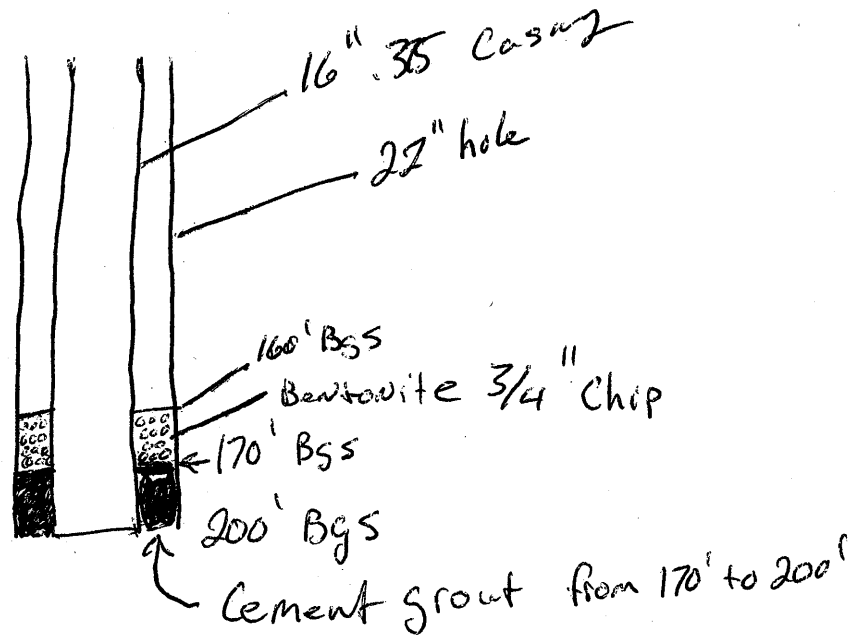 16" .375 Casing
22" hole
160' Bgs
Bentonite 3/4" Chip
170' Bgs
200' Bgs
Cement grout from 170' to 200'